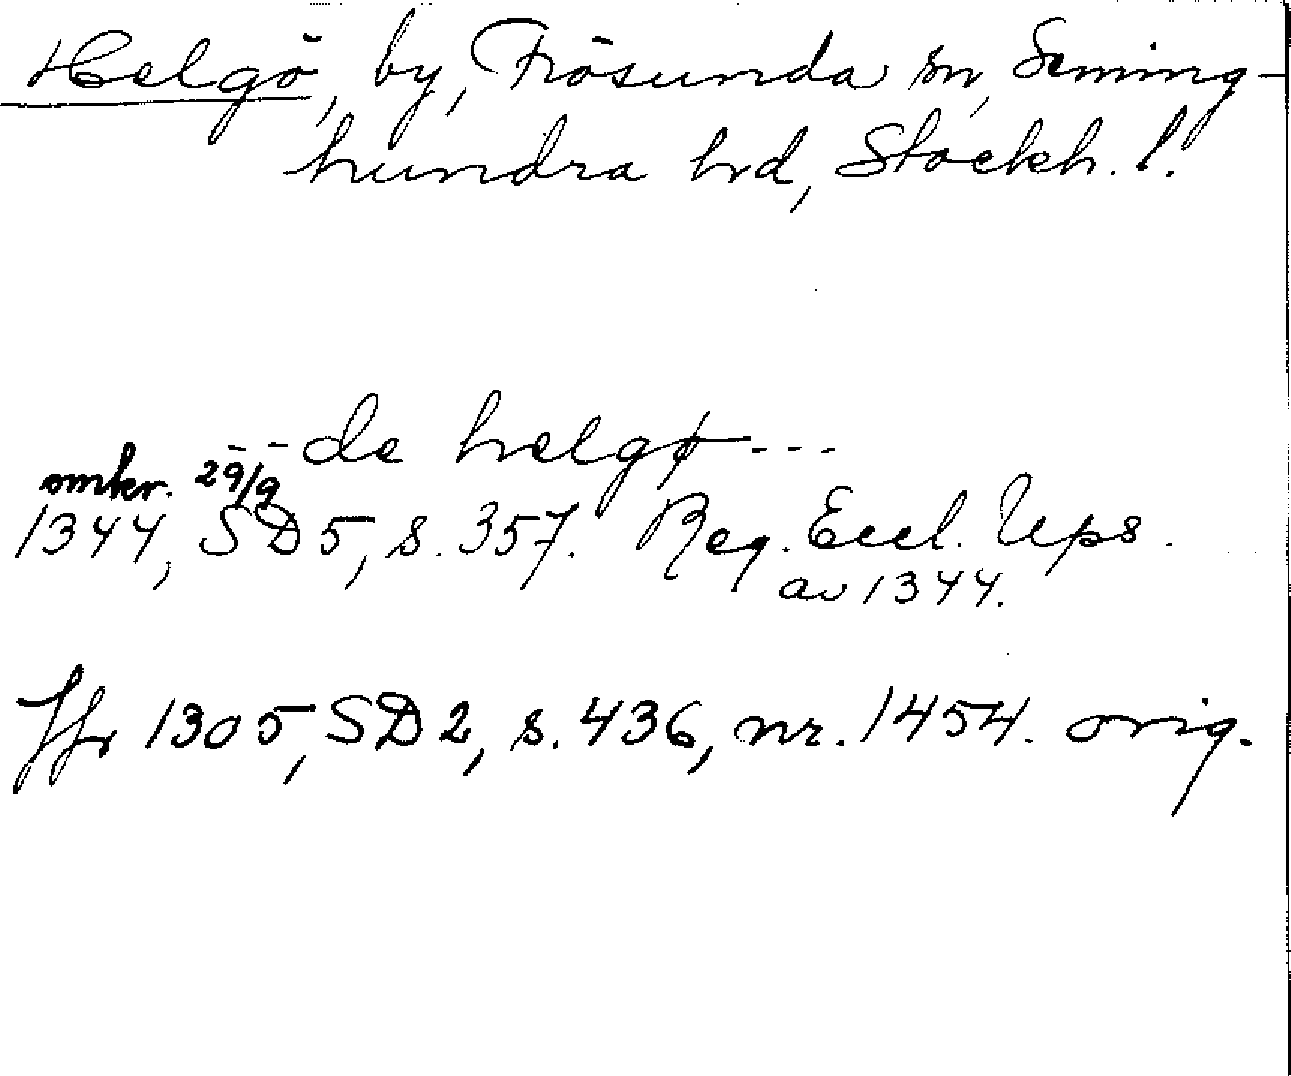 Helgö, by, Frösunda sn, Seming-
hundra hrd, Stockh. l.
- - de helgø - - -
omkr. 29/9
1344, SD 5, s. 357. Reg. Eccl. Ups.
av 1344.
Jfr 1305, SD 2, s. 436, nr. 1454. orig.